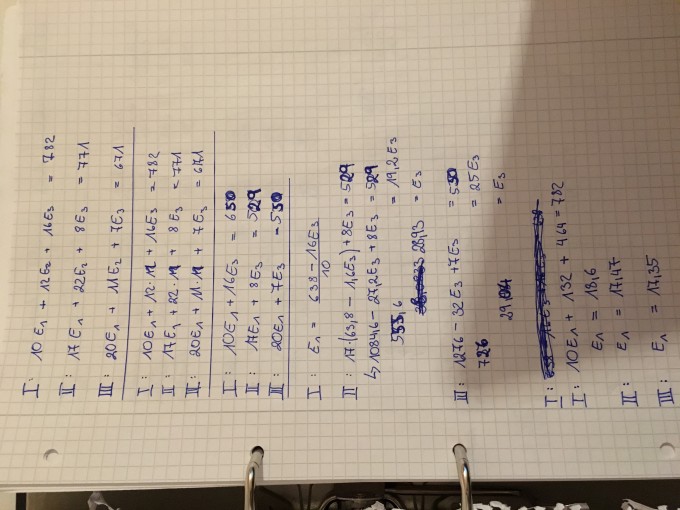 I: 10E₁ + 12E₂ + 16E₃ = 782
II: 17E₁ + 22E₂ + 8E₃ = 771
III: 20E₁ + 11E₂ + 7E₃ = 671
I: 10E₁ + 12·11 + 16E₃ = 782
II: 17E₁ + 22·11 + 8E₃ = 771
III: 20E₁ + 11·11 + 7E₃ = 671
I: 10E₁ + 16E₃ = 650
II: 17E₁ + 8E₃ = 529
III: 20E₁ + 7E₃ = 550
I: E₁ = 638 - 16E₃
10
II: 17·(63,8 - 1,6E₃) + 8E₃ = 529
↳ 1084,6 - 27,2E₃ + 8E₃ = 529
555,6 = 19,2E₃
28,93 = E₃
III: 1276 - 32E₃ + 7E₃ = 550
726 = 25E₃
29,04 = E₃
I:
I: 10E₁ + 132 + 464 = 782
E₁ = 18,6
II: E₁ = 17,47
III: E₁ = 17,35